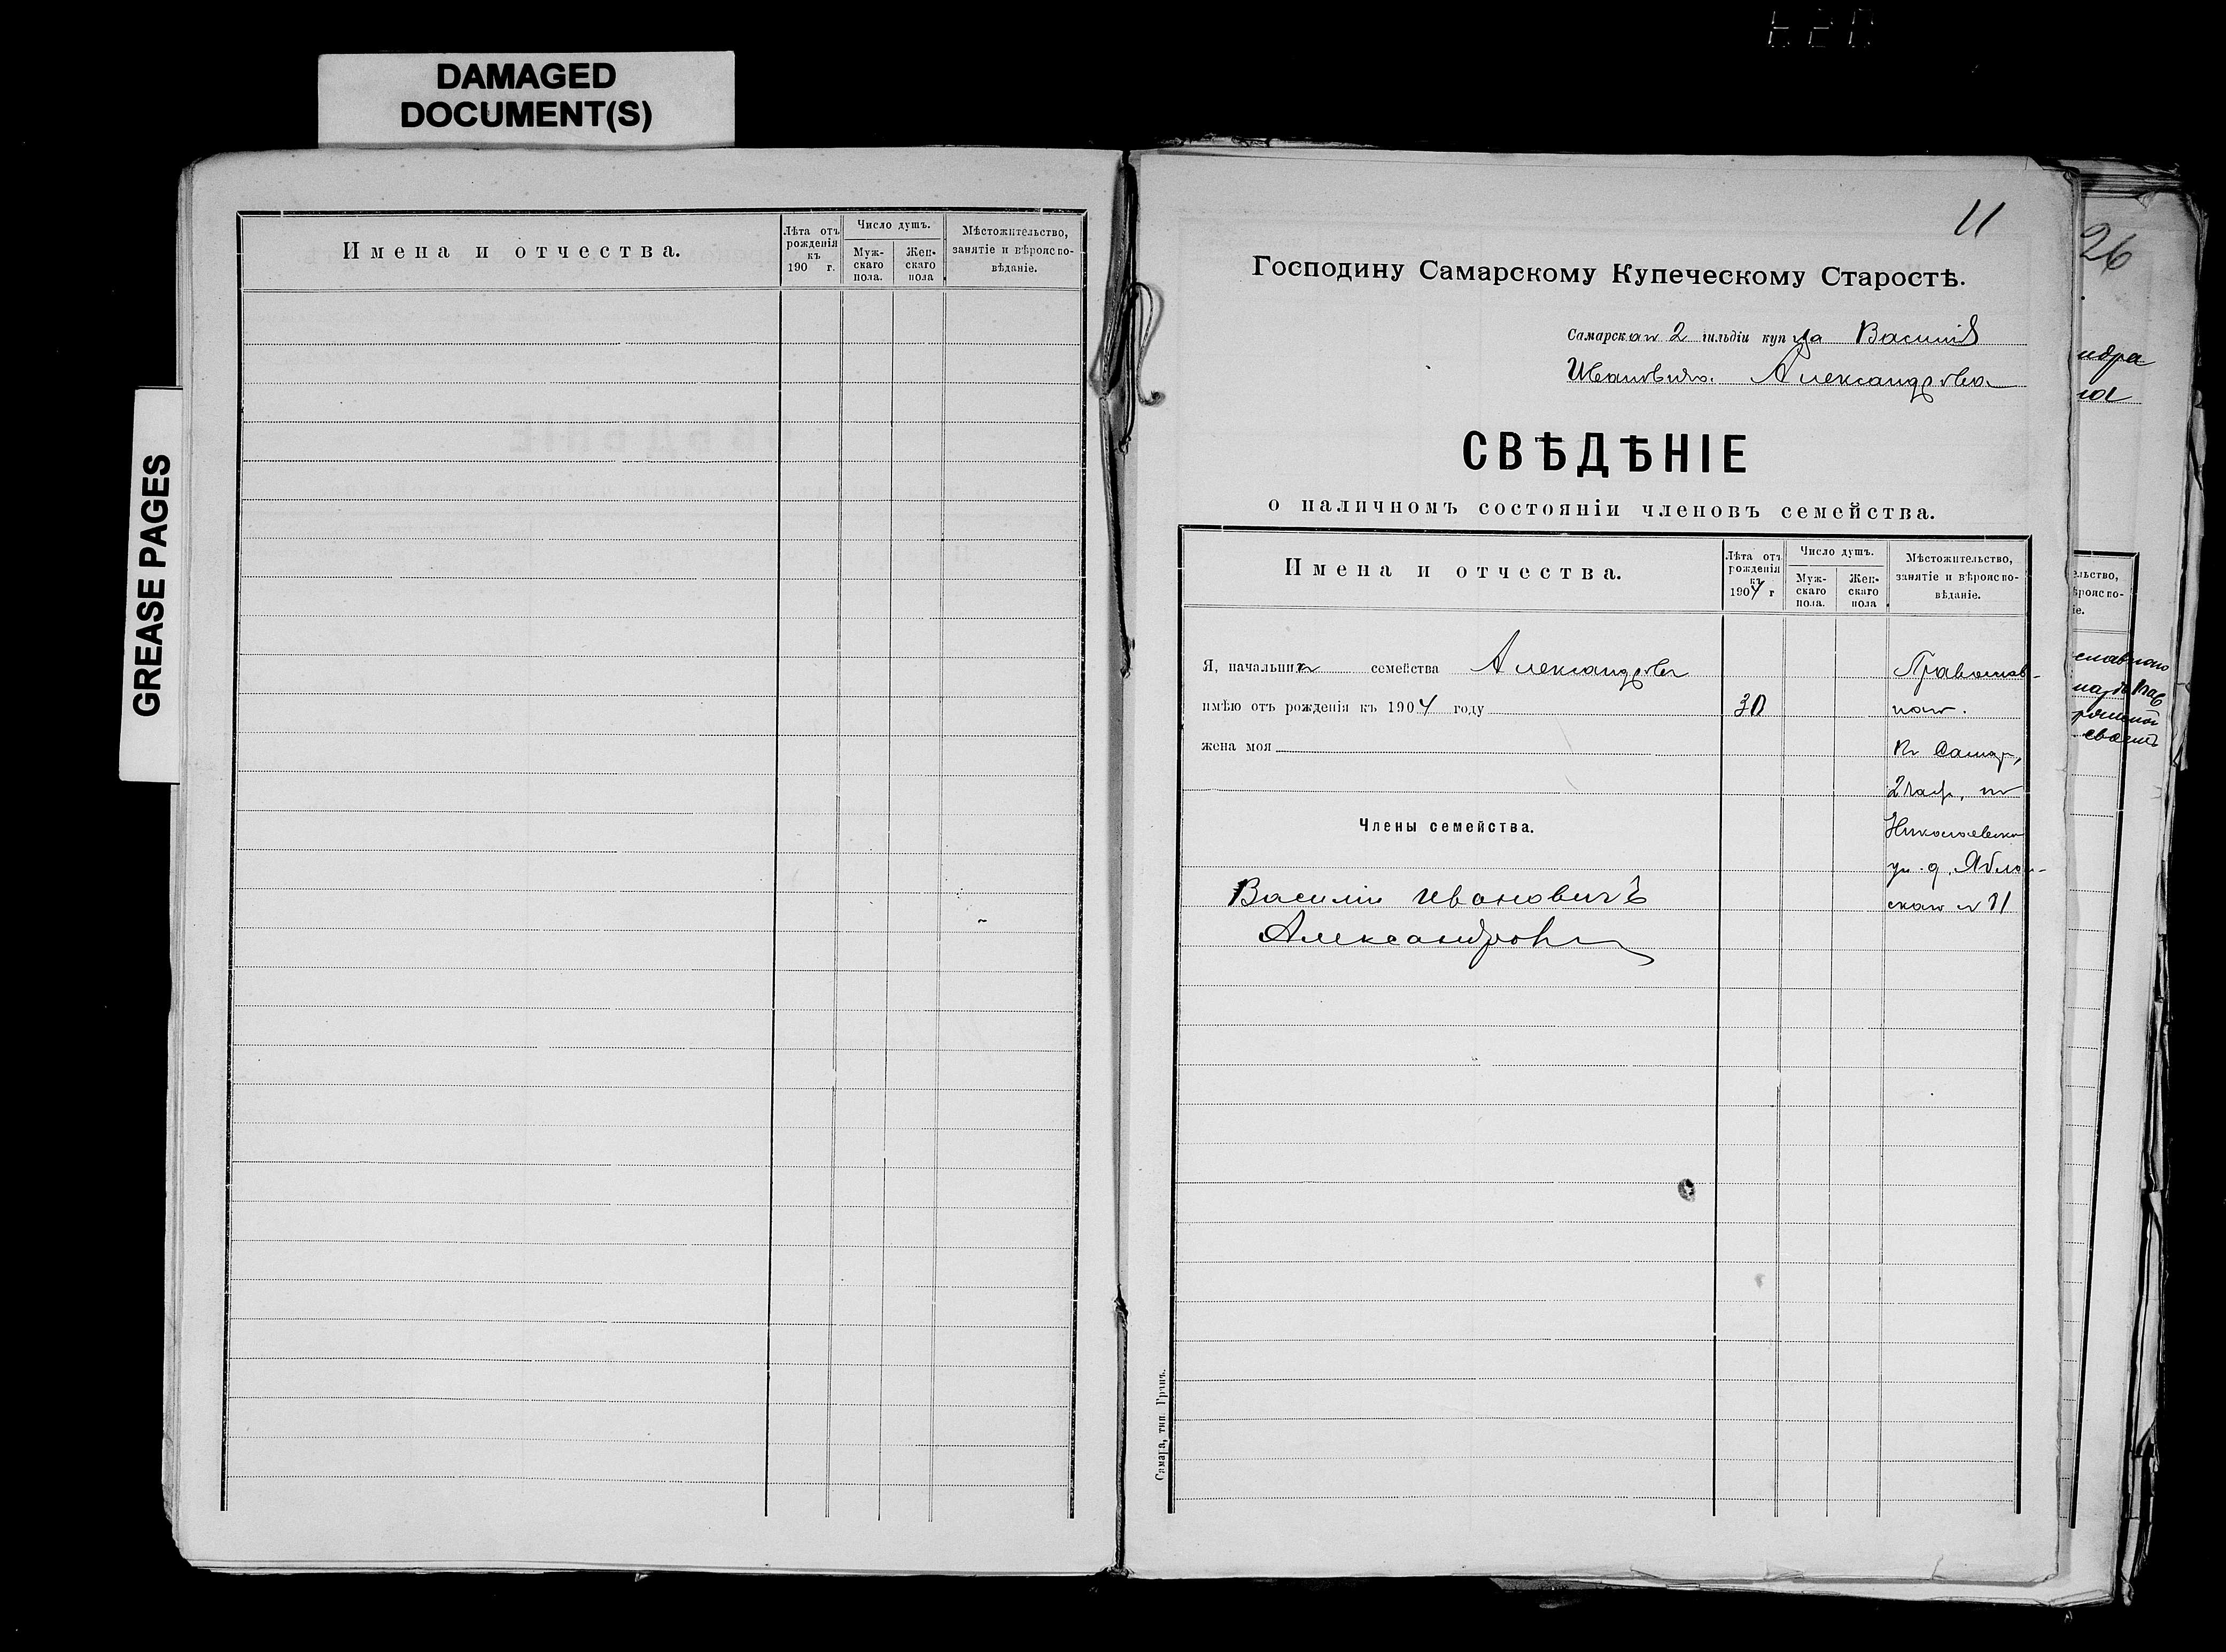 DAMAGED
DOCUMENT(S)
GREASE PAGES
Имена и отчества.
Лѣта отъ рожденія къ 190 г.
Число душъ.
Муж-скаго пола.
Жен-скаго пола
Мѣстожительство, занятіе и вѣроисповѣданіе.
11
Господину Самарскому Купеческому Старостѣ.
Самарскаго 2 гильдіи купца Василія
Ивановича Александрова
СВѢДѢНІЕ
о наличномъ состояніи членовъ семейства.
Имена и отчества.
Лѣта отъ рожденія къ 1904 г
Число душъ.
Муж-скаго пола.
Жен-скаго пола
Мѣстожительство, занятіе и вѣроисповѣданіе.
Я, начальникъ семейства Александровъ
Православ-
имѣю отъ рожденія къ 1904 году 30
наго.
жена моя
Въ Самар,
2 част, по
Члены семейства.
Николаевской
ул. д. Ябло-
Василій Ивановичъ
скаго № 11
Александровъ
Самара, тип. Гранъ.
26